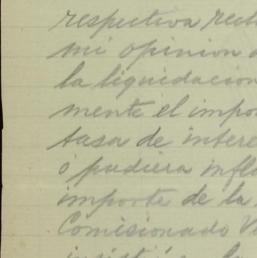 respectiva rect
mi opinion
la liquidacion
mente el impor
tasa de intere
ó pudiera infl
importe de la
Comisionado V
insistió la